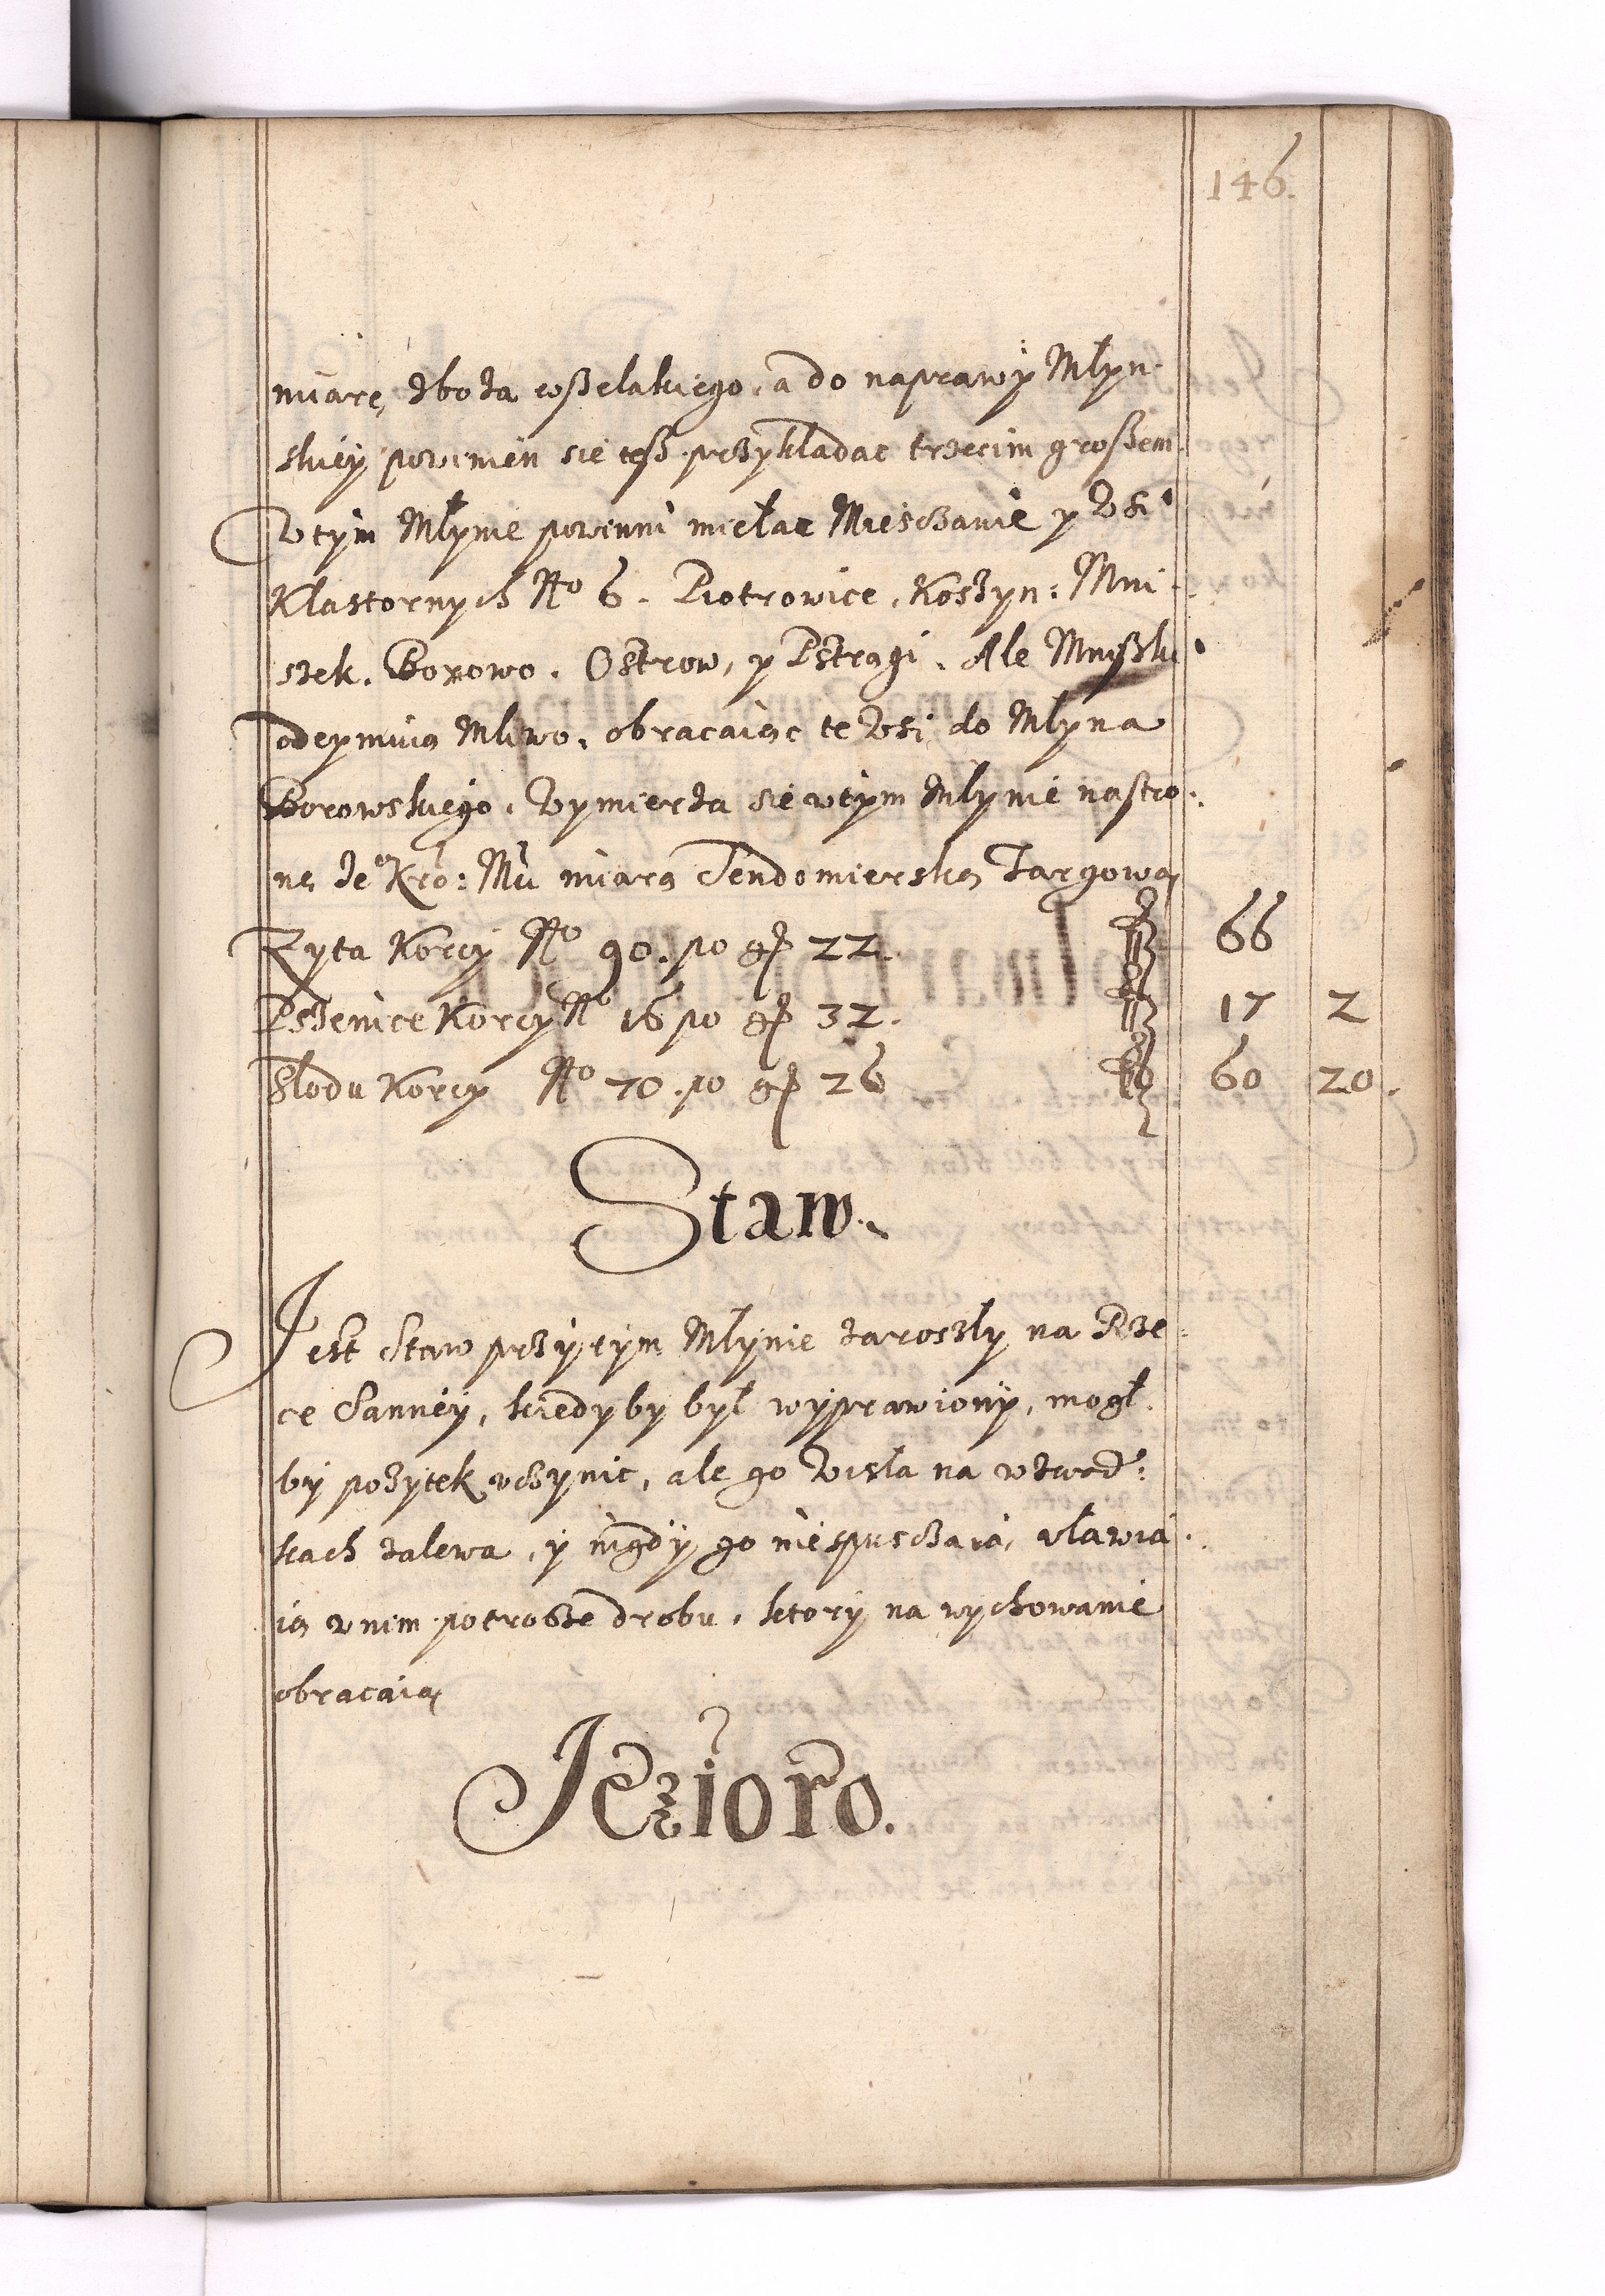 146.
miarę, zboza wszelakiego, a do naprawÿ Młyn-
skieÿ powinien sie tesz przykładac trzecim groszem.
W tÿm Młynie powinni miełac Miesczanie y Wsi
Klastornych No 6. Piotrowice, Koszyn: Mni-
szek. Borowo. Ostrow, y Pstragi. Ale Mniszki
odeymuią Mliwo, obracaiąc te Wsi do Młyna
Borowskiego. Wymierza sie w tÿm Młynie na stro:
nę Je° Kro: Mci miarą Sendomierską Targową
Zyta Korcy No 90. po gr 22. fl 66
Pszenice Korcy No 16 po gr 32. fl 17 2
Słodu Korcy No 70. po gr 26 fl 60 20.
Staw.
Jest Staw przÿ tÿm Młynie zaroszły na Rze:
ce Sanneÿ, kiedy by był wÿprawionÿ, mogł
bÿ pozytek vczynic, ale go Wisła na wzwod:
kach zalewa, y nigdÿ go niespusczaią, vławia
ią w nim potrosze drobu, ktorÿ na wychowanie
obracaią
Jezioro.